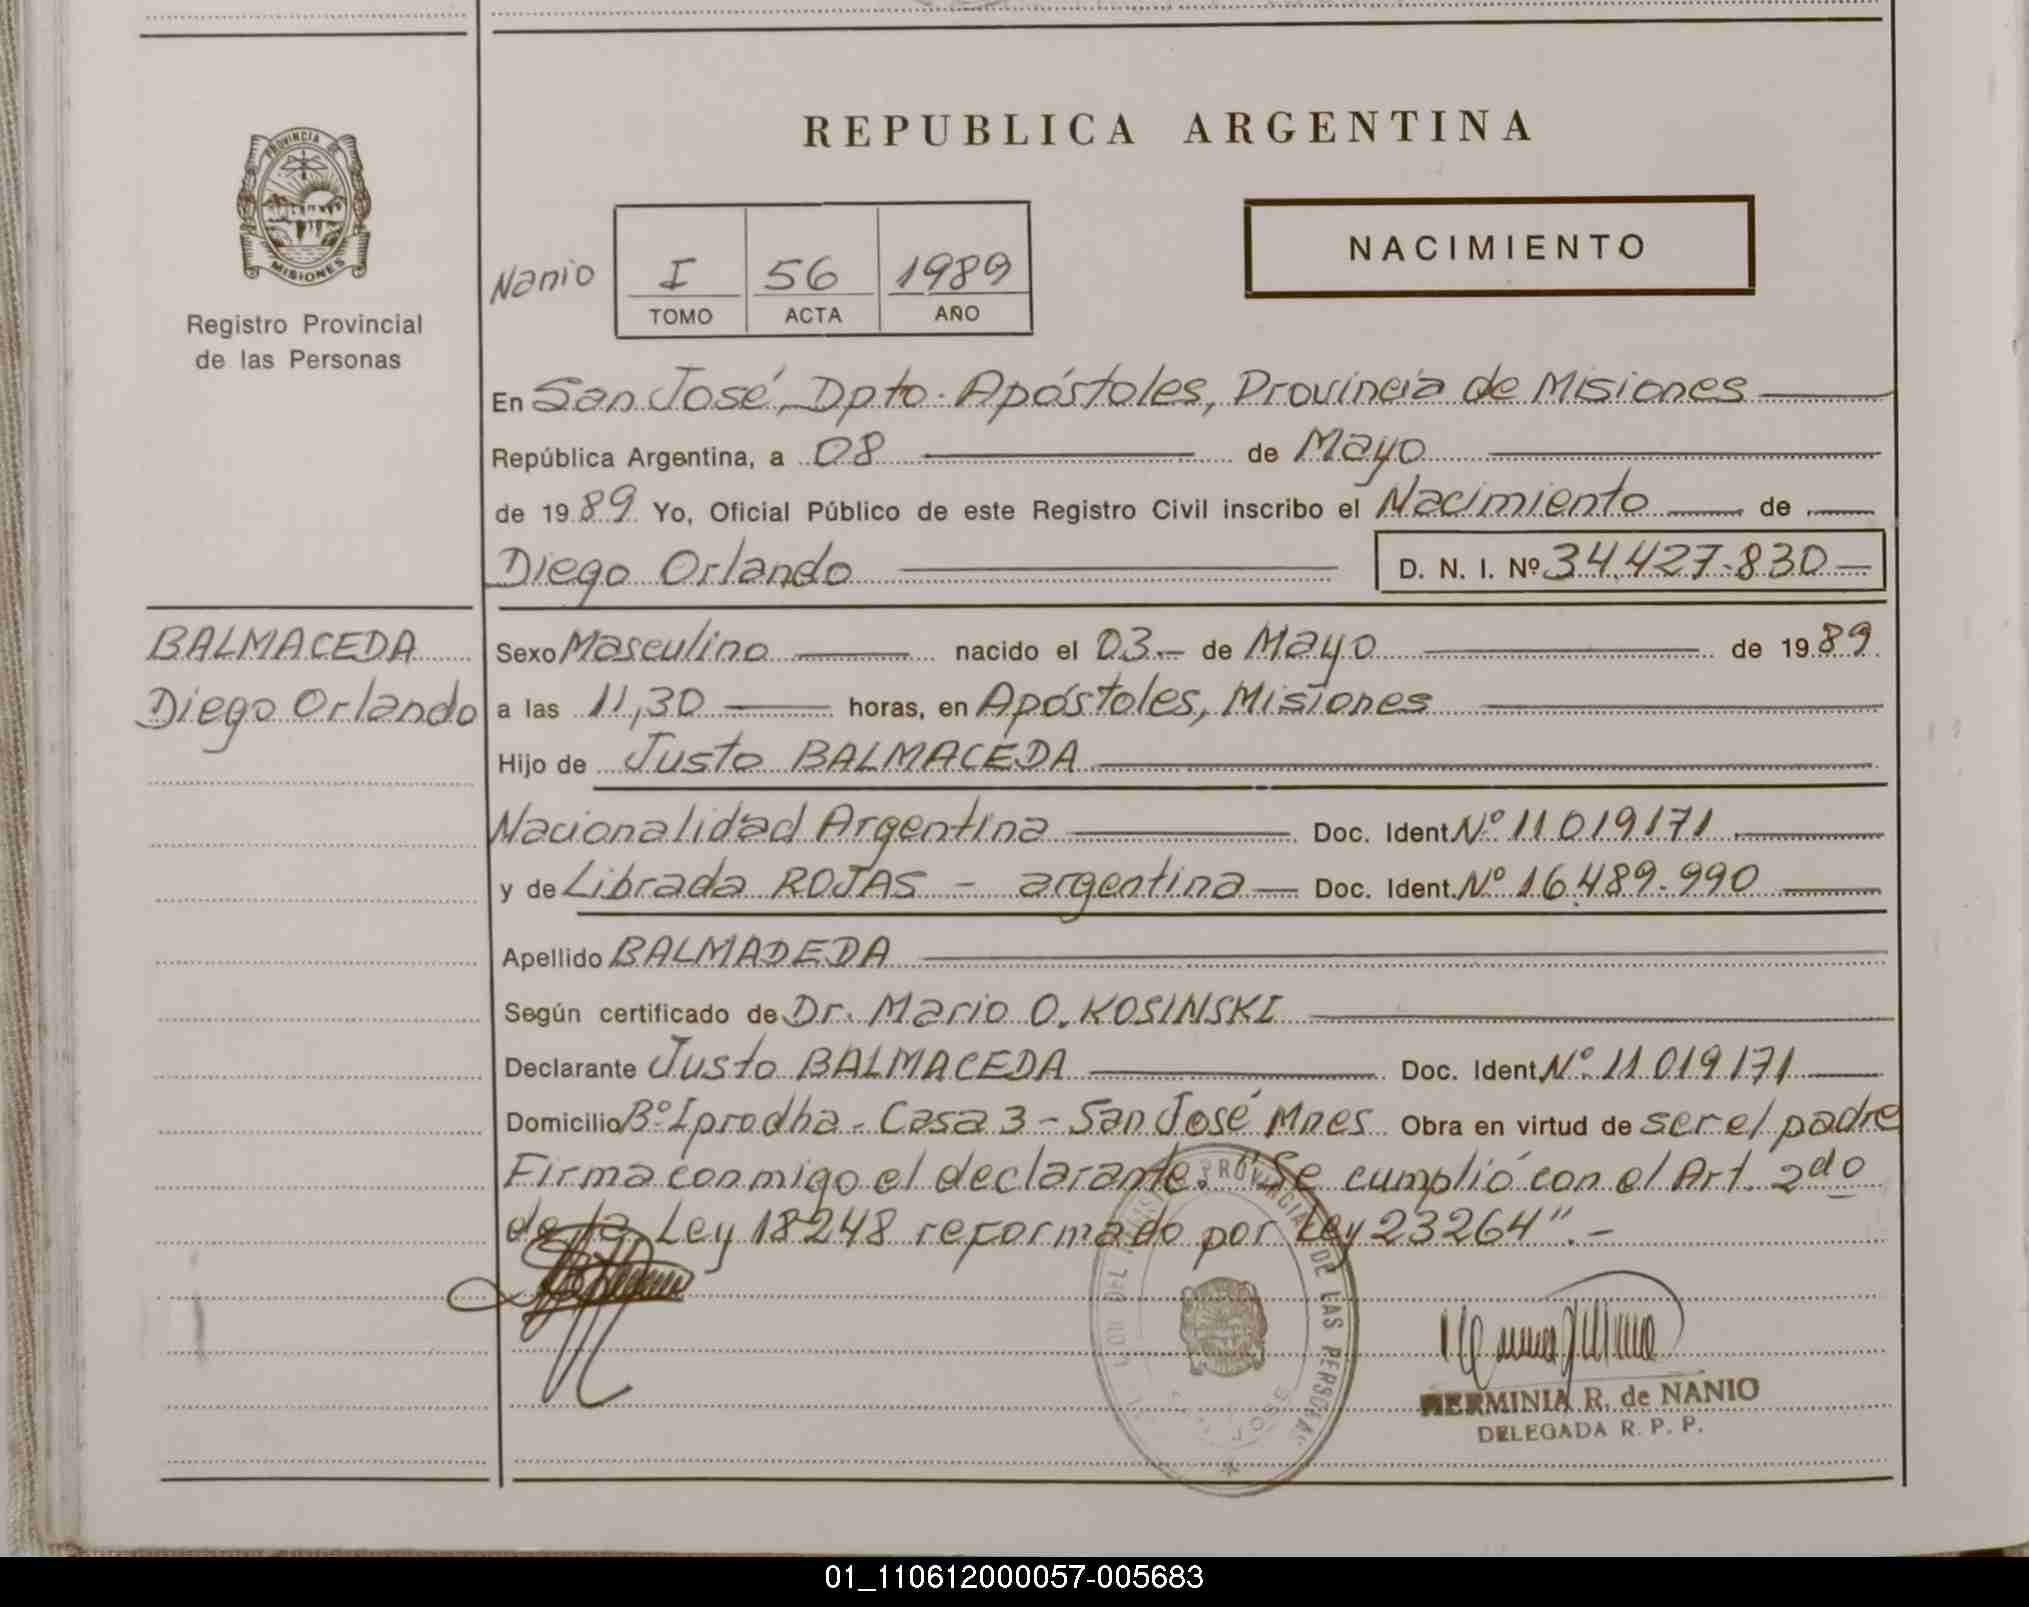 REPUBLICA ARGENTINA
PROVINCIA DE
MISIONES
Registro Provincial
de las Personas
Nanio
I 56 1989
TOMO ACTA AÑO
NACIMIENTO
En San José, Dpto. Apóstoles, Provincia de Misiones
República Argentina, a 08 de Mayo
de 1989 Yo, Oficial Público de este Registro Civil inscribo el Nacimiento de
Diego Orlando D. N. I. Nº 34.427.830
BALMACEDA
Diego Orlando
Sexo Masculino nacido el 03 de Mayo de 1989
a las 11,30 horas, en Apóstoles, Misiones
Hijo de Justo BALMACEDA
Nacionalidad Argentina Doc. Ident. Nº 11019171
y de Librada ROJAS - argentina Doc. Ident. Nº 16.489.990
Apellido BALMADEDA
Según certificado de Dr. Mario O. KOSINSKI
Declarante Justo BALMACEDA Doc. Ident. Nº 11019171
Domicilio Bº Iprodha - Casa 3 - San José Mnes Obra en virtud de ser el padre
Firma conmigo el declarante. "Se cumplió con el Art. 2do
de la Ley 18248 reformado por Ley 23264".-
PROVINCIAL DE LAS PERSONAS
JOSE
HERMINIA R. de NANIO
DELEGADA R. P. P.
01_110612000057-005683